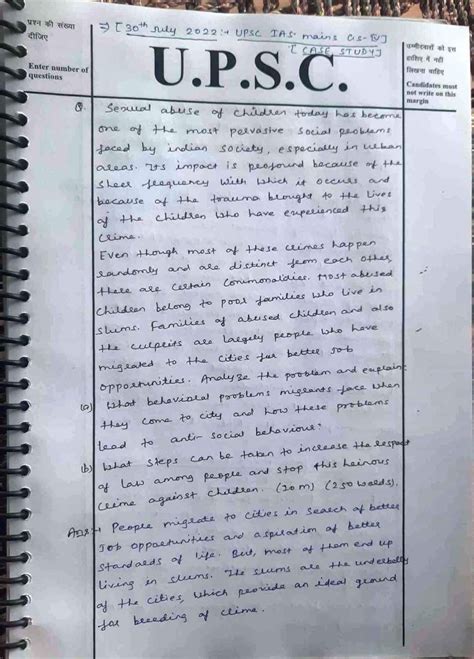 ⇒ [30th July 2022:→ UPSC IAS mains GS-IV]
[CASE STUDY]
प्रश्न की संख्या
दीजिए
Enter number of
questions
U.P.S.C.
उम्मीदवारों को इस
हाशिए में नहीं
लिखना चाहिए
Candidates must
not write on this
margin
Q. Sexual abuse of children today has become
one of the most pervasive social problems
faced by indian society, especially in urban
areas. Its impact is profound because of the
sheer frequency with which it occurs and
because of the trauma brought to the lives
of the children who have experienced this
crime.
Even though most of these crimes happen
randomly and are distinct from each other,
there are certain commonalities. Most abused
children belong to poor families who live in
slums. Families of abused children and also
the culprits are largely people who have
migrated to the cities for better job
opportunities. Analyze the problem and explain:
(a) What behavioral problems migrants face when
they come to city and how these problems
lead to anti-social behaviour?
(b) What steps can be taken to increase the respect
of law among people and stop this heinous
crime against children. (20m) (250 words).
Ans:→ People migrate to cities in search of better
job opportunities and aspiration of better
standards of life. But, most of them end up
living in slums. The slums are the underbelly
of the cities, which provide an ideal ground
for breeding of crime.